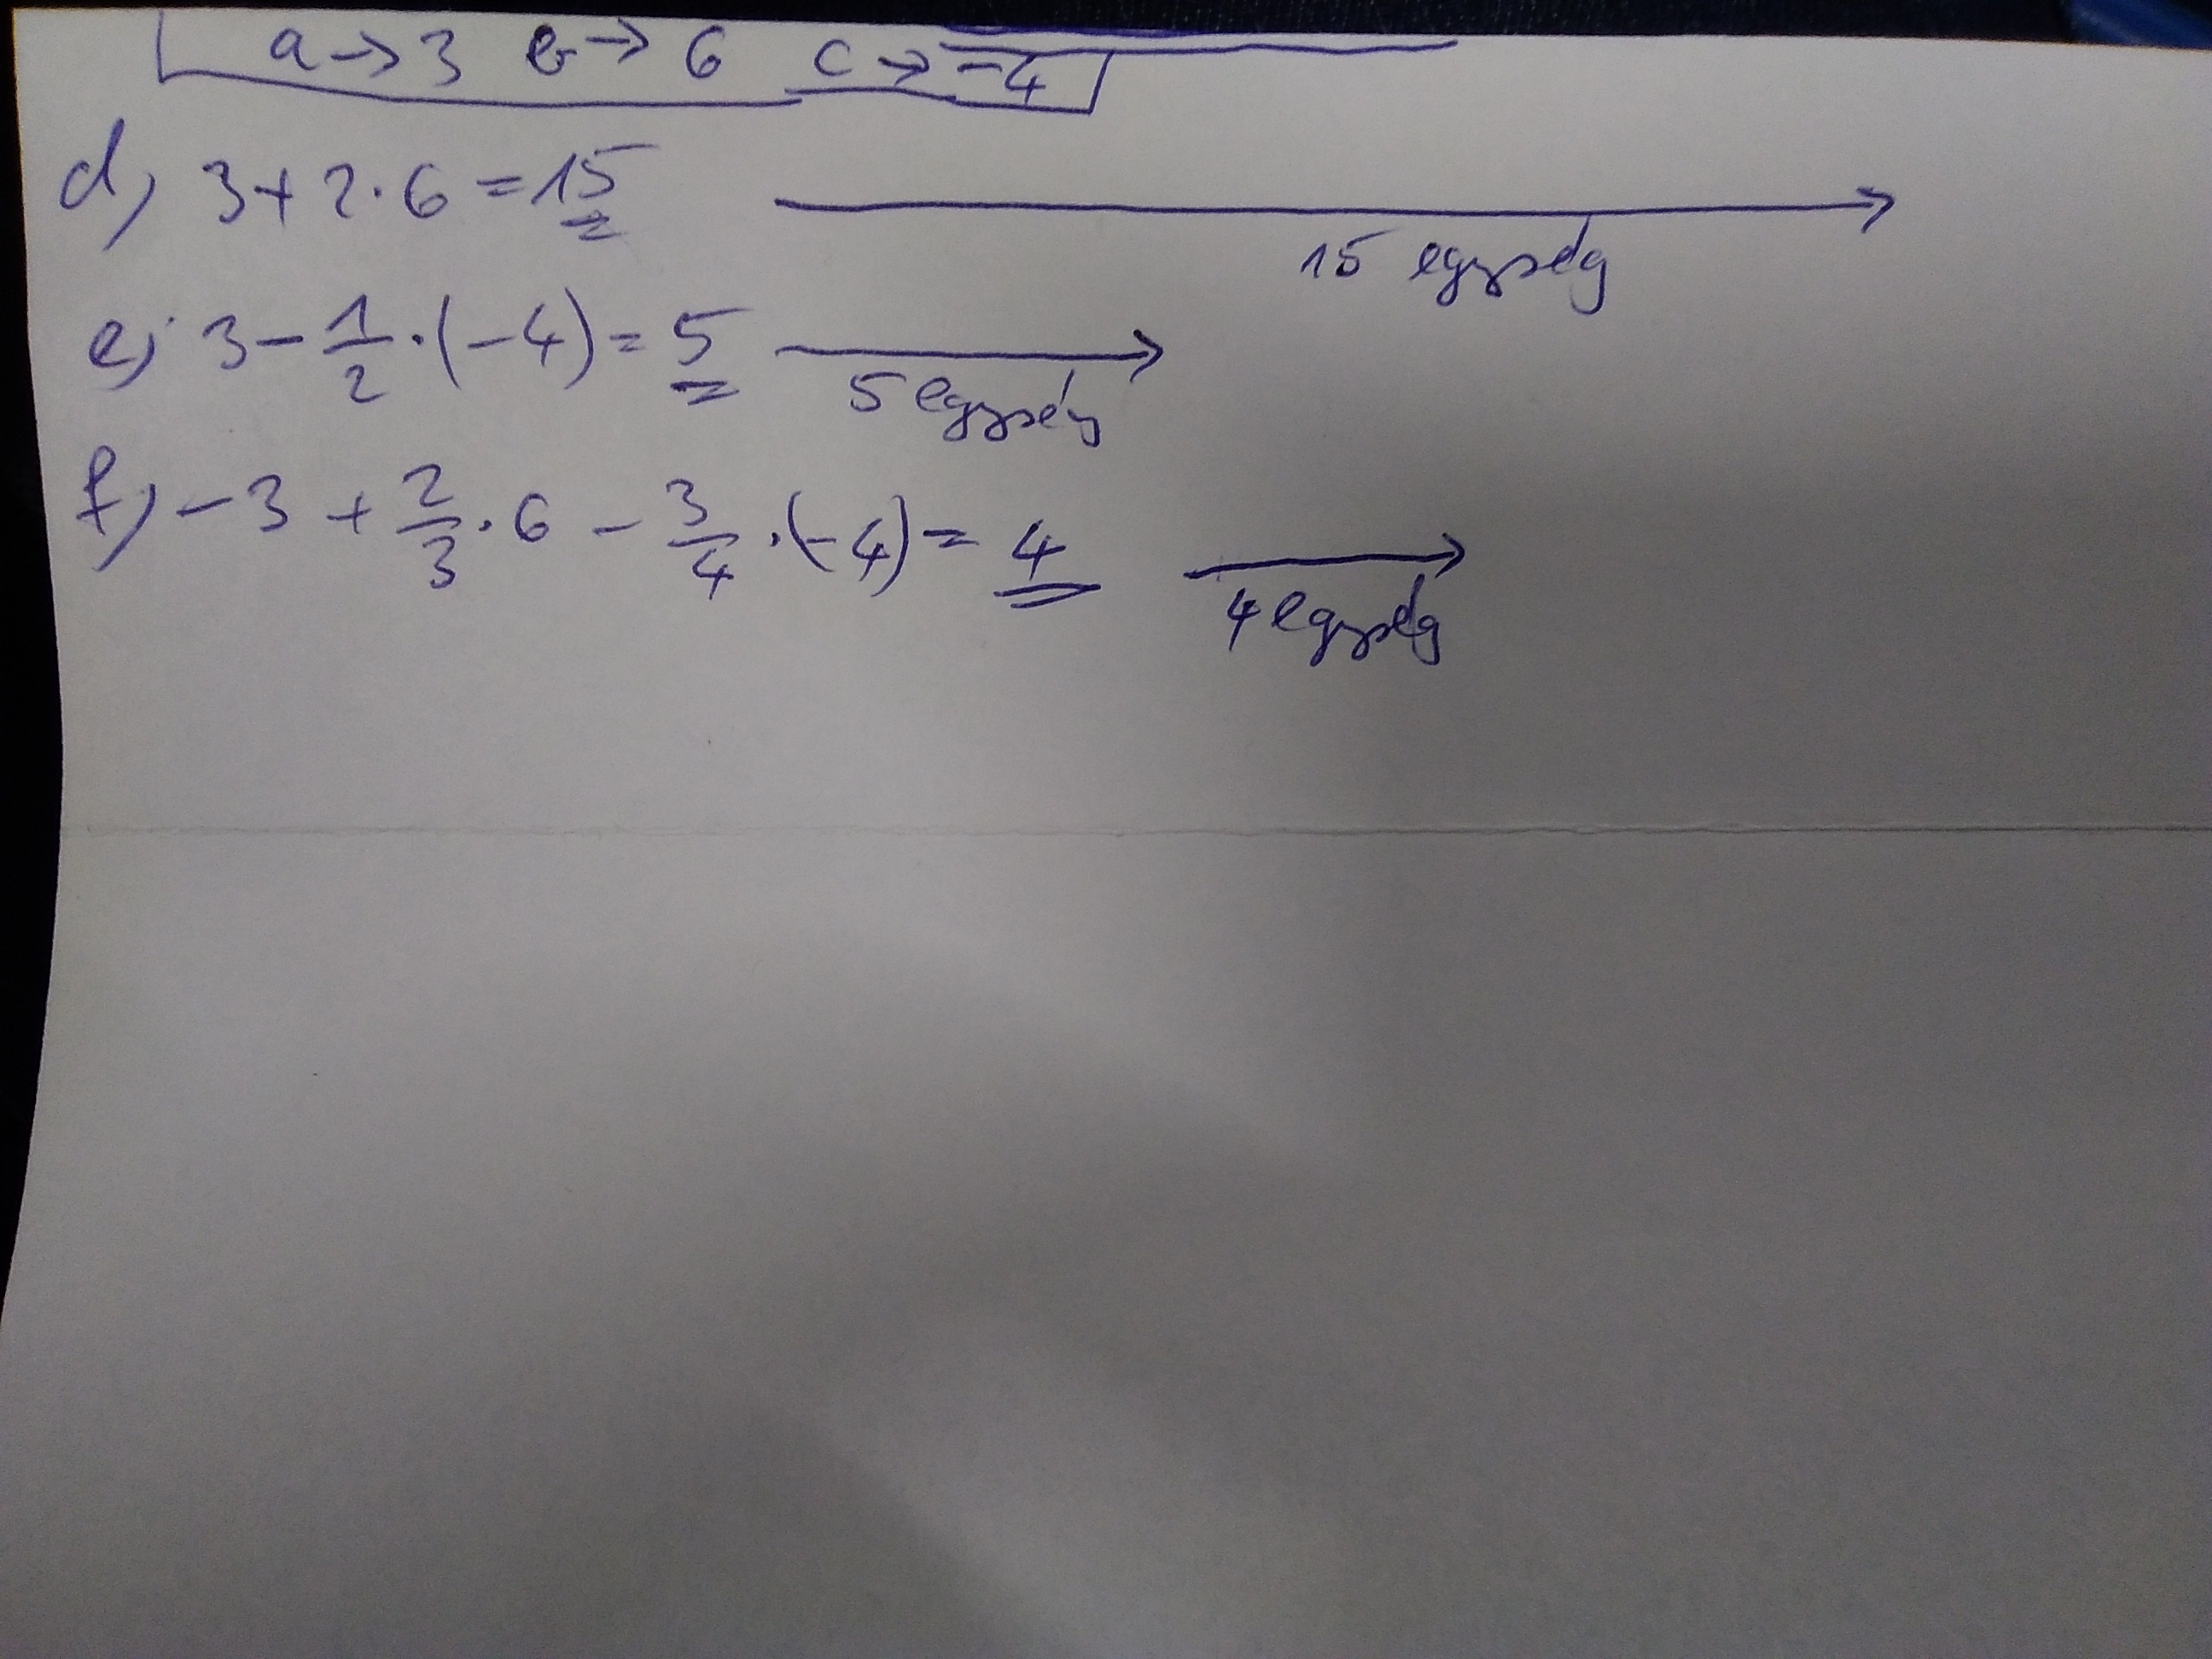 a → 3 b → 6 c → -4
d, 3 + 2 · 6 = 15
15 egység
e, 3 - 1/2 · (-4) = 5
5 egység
f, -3 + 2/3 · 6 - 3/4 · (-4) = 4
4 egység